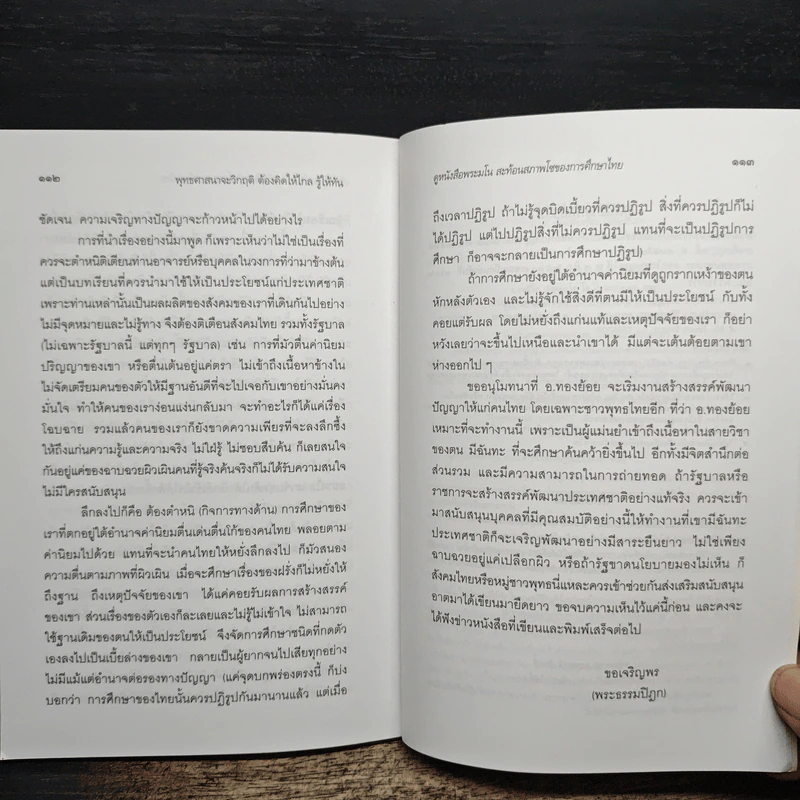 ๑๑๒
พุทธศาสนาจะวิกฤติ ต้องคิดให้ไกล รู้ให้ทัน
ชัดเจน ความเจริญทางปัญญาจะก้าวหน้าไปได้อย่างไร
การที่นำเรื่องอย่างนี้มาพูด ก็เพราะเห็นว่าไม่ใช่เป็นเรื่องที่
ควรจะตำหนิติเตียนท่านอาจารย์หรือบุคคลในวงการที่ว่ามาข้างต้น
แต่เป็นบทเรียนที่ควรนำมาใช้ให้เป็นประโยชน์แก่ประเทศชาติ
เพราะท่านเหล่านั้นเป็นผลผลิตของสังคมของเราที่เดินกันไปอย่าง
ไม่มีจุดหมายและไม่รู้ทาง จึงต้องติเตือนสังคมไทย รวมทั้งรัฐบาล
(ไม่เฉพาะรัฐบาลนี้ แต่ทุกๆ รัฐบาล) เช่น การที่มัวตื่นค่านิยม
ปริญญาของเขา หรือตื่นเต้นอยู่แค่ตรา ไม่เข้าถึงเนื้อหาข้างใน
ไม่จัดเตรียมคนของตัวให้มีฐานอันดีที่จะไปเจอกับเขาอย่างมั่นคง
มั่นใจ ทำให้คนของเราง่อนแง่นกลับมา จะทำอะไรก็ได้แค่เรื่อง
โฉบฉาย รวมแล้วคนของเราก็ยังขาดความเพียรที่จะลงลึกซึ้ง
ให้ถึงแก่นความรู้และความจริง ไม่ใฝ่รู้ ไม่ชอบสืบค้น ก็เลยสนใจ
กันอยู่แค่ของฉาบฉวยผิวเผินคนที่รู้จริงค้นจริงก็ไม่ได้รับความสนใจ
ไม่มีใครสนับสนุน
ลึกลงไปก็คือ ต้องตำหนิ (กิจการทางด้าน) การศึกษาของ
เราที่ตกอยู่ใต้อำนาจค่านิยมตื่นเด่นตื่นโก้ของคนไทย พลอยตาม
ค่านิยมไปด้วย แทนที่จะนำคนไทยให้หยั่งลึกลงไป ก็มัวสนอง
ความตื่นตามภาพที่ผิวเผิน เมื่อจะศึกษาเรื่องของฝรั่งก็ไม่หยั่งให้
ถึงฐาน ถึงเหตุปัจจัยของเขา ได้แค่คอยรับผลการสร้างสรรค์
ของเขา ส่วนเรื่องของตัวเองก็ละเลยและไม่รู้ไม่เข้าใจ ไม่สามารถ
ใช้ฐานเดิมของตนให้เป็นประโยชน์ จึงจัดการศึกษาชนิดที่กดตัว
เองลงไปเป็นเบี้ยล่างของเขา กลายเป็นผู้ยากจนไปเสียทุกอย่าง
ไม่มีแม้แต่อำนาจต่อรองทางปัญญา (แค่จุดบกพร่องตรงนี้ ก็บ่ง
บอกว่า การศึกษาของไทยนั้นควรปฏิรูปกันมานานแล้ว แต่เมื่อ
ดูหนังสือพระมโน สะท้อนสภาพโซของการศึกษาไทย
๑๑๓
ถึงเวลาปฏิรูป ถ้าไม่รู้จุดบิดเบี้ยวที่ควรปฏิรูป สิ่งที่ควรปฏิรูปก็ไม่
ได้ปฏิรูป แต่ไปปฏิรูปสิ่งที่ไม่ควรปฏิรูป แทนที่จะเป็นปฏิรูปการ
ศึกษา ก็อาจจะกลายเป็นการศึกษาปฏิรูป)
ถ้าการศึกษายังอยู่ใต้อำนาจค่านิยมที่ดูถูกรากเหง้าของตน
หักหลังตัวเอง และไม่รู้จักใช้สิ่งดีที่ตนมีให้เป็นประโยชน์ กับทั้ง
คอยแต่รับผล โดยไม่หยั่งถึงแก่นแท้และเหตุปัจจัยของเรา ก็อย่า
หวังเลยว่าจะขึ้นไปเหนือและนำเขาได้ มีแต่จะเต้นต้อยตามเขา
ห่างออกไป ๆ
ขออนุโมทนาที่ อ.ทองย้อย จะเริ่มงานสร้างสรรค์พัฒนา
ปัญญาให้แก่คนไทย โดยเฉพาะชาวพุทธไทยอีก ที่ว่า อ.ทองย้อย
เหมาะที่จะทำงานนี้ เพราะเป็นผู้แม่นยำเข้าถึงเนื้อหาในสายวิชา
ของตน มีฉันทะ ที่จะศึกษาค้นคว้ายิ่งขึ้นไป อีกทั้งมีจิตสำนึกต่อ
ส่วนรวม และมีความสามารถในการถ่ายทอด ถ้ารัฐบาลหรือ
ราชการจะสร้างสรรค์พัฒนาประเทศชาติอย่างแท้จริง ควรจะเข้า
มาสนับสนุนบุคคลที่มีคุณสมบัติอย่างนี้ให้ทำงานที่เขามีฉันทะ
ประเทศชาติก็จะเจริญพัฒนาอย่างมีสาระยืนยาว ไม่ใช่เพียง
ฉาบฉวยอยู่แค่เปลือกผิว หรือถ้ารัฐขาดนโยบายมองไม่เห็น ก็
สังคมไทยหรือหมู่ชาวพุทธนี่แหละควรเข้าช่วยกันส่งเสริมสนับสนุน
อาตมาได้เขียนมายืดยาว ขอจบความเห็นไว้แค่นี้ก่อน และคงจะ
ได้ฟังข่าวหนังสือที่เขียนและพิมพ์เสร็จต่อไป
ขอเจริญพร
(พระธรรมปิฎก)